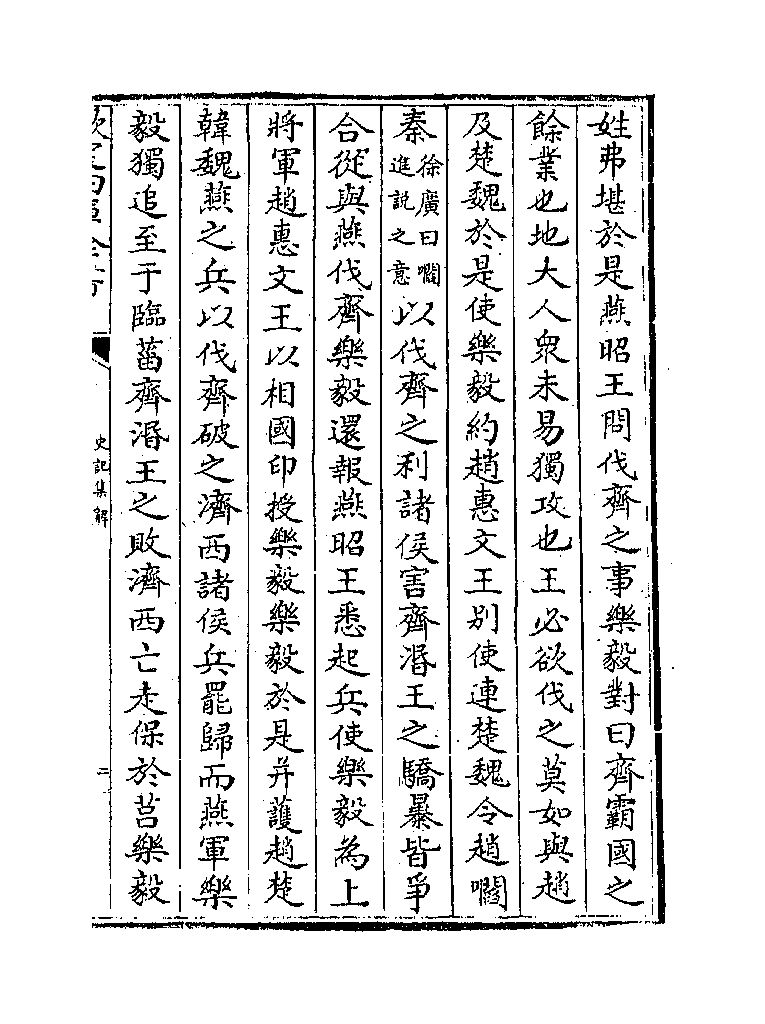 姓弗堪於是燕昭王問伐齊之事樂毅對曰齊霸國之
餘業也地大人眾未易獨攻也王必欲伐之莫如與趙
及楚魏於是使樂毅約趙惠文王别使連楚魏令趙嚪
秦徐廣曰嚪進說之意以伐齊之利諸侯害齊湣王之驕暴皆爭
合從與燕伐齊樂毅還報燕昭王悉起兵使樂毅為上
將軍趙惠文王以相國印授樂毅樂毅於是并䕶趙楚
韓魏燕之兵以伐齊破之濟西諸侯兵罷歸而燕軍樂
毅獨追至于臨菑齊湣王之敗濟西亡走保於莒樂毅
欽定四庫全書
史記集解
二